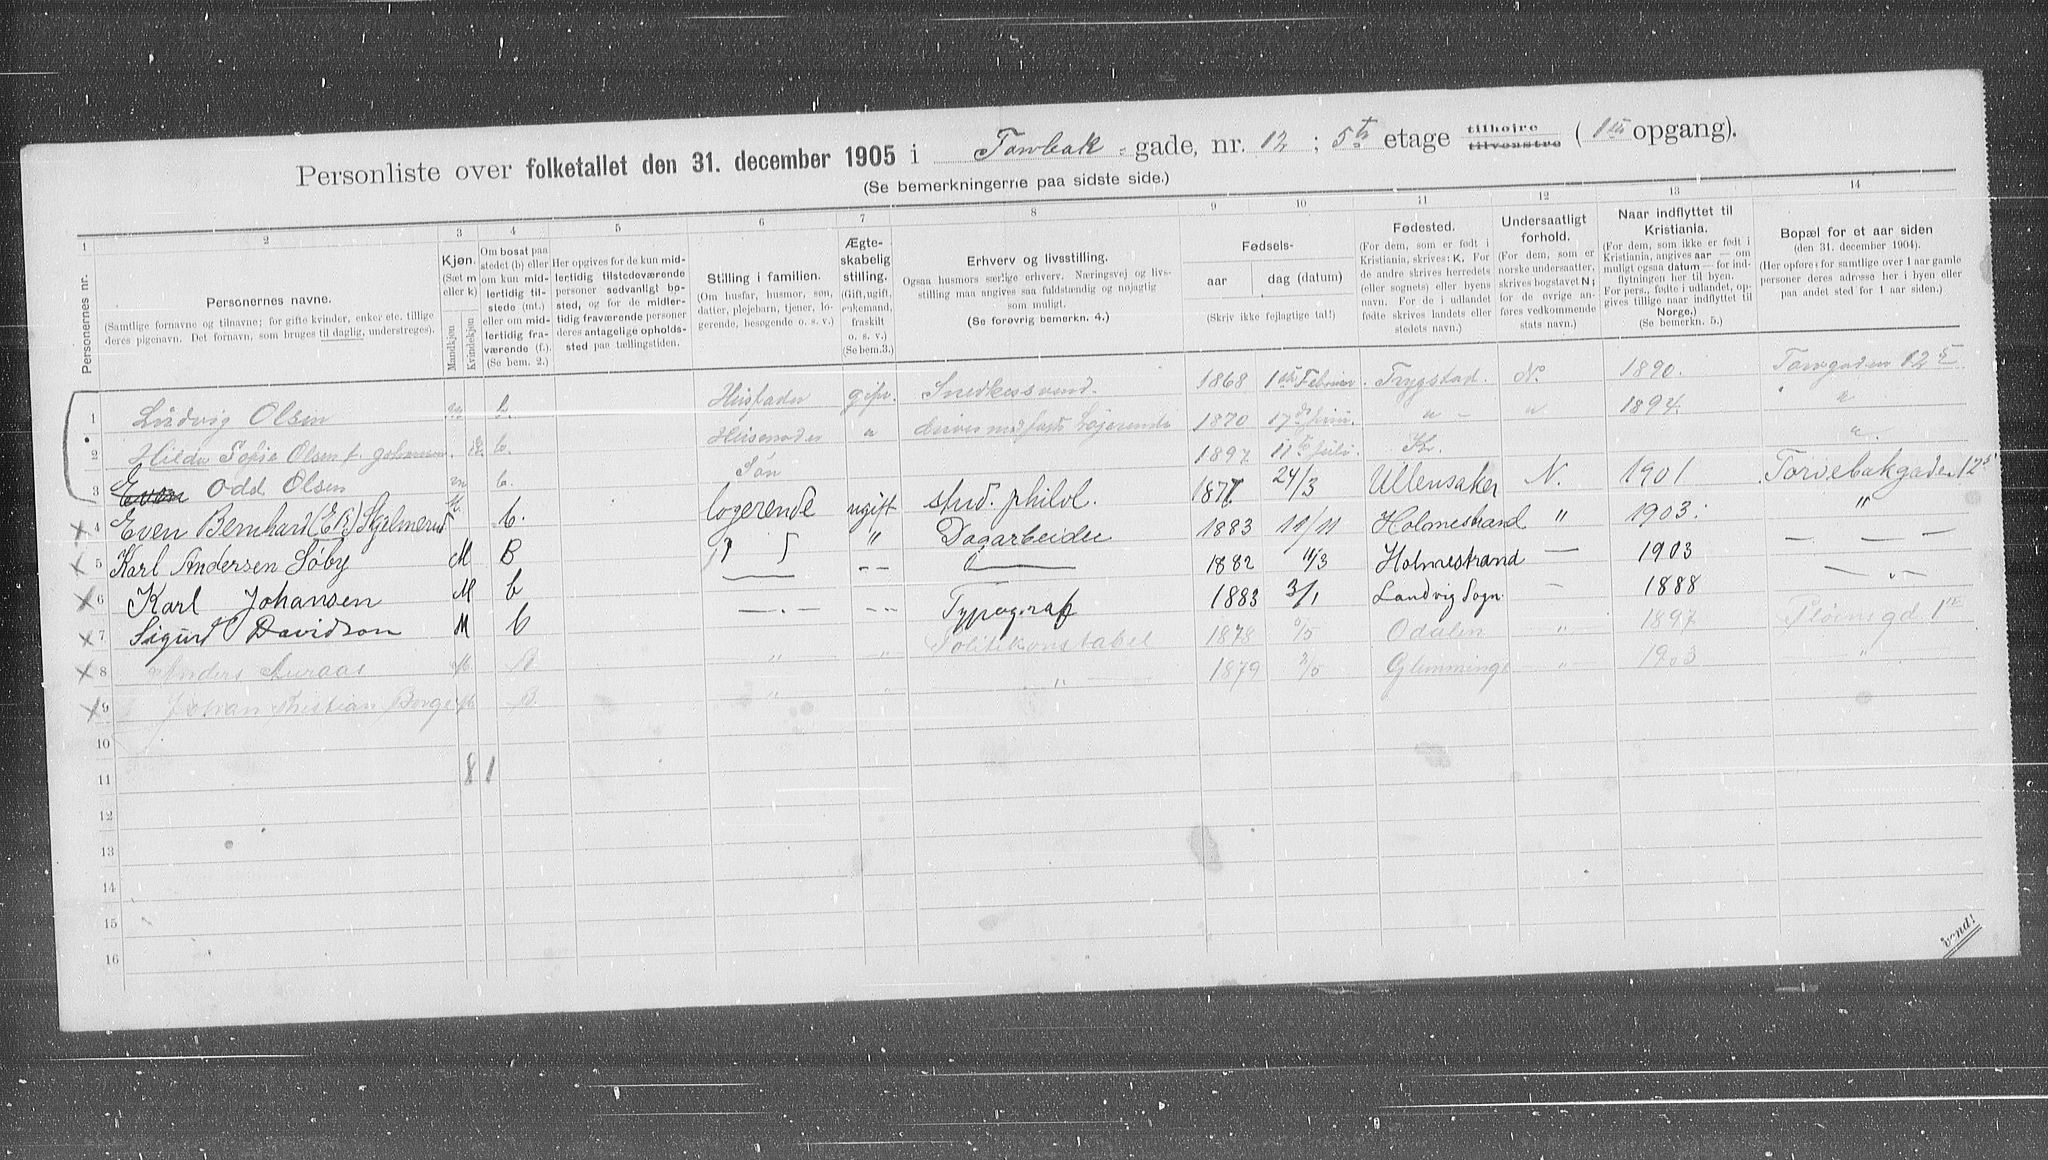 Personliste over folketallet den 31. december 1905 i Torvbak - gade, nr. 12 ; 5te etage tilhøjre tilvenstre ( 1ste opgang).
(Se bemerkningerne paa sidste side.)
1 2 3 4 5 6 7 8 9 10 11 12 13 14
Personernes nr.
Personernes navne.
(Samtlige fornavne og tilnavne; for gifte kvinder, enker etc. tillige deres pigenavn. Det fornavn, som bruges til daglig, understreges).
Kjøn.
(Sæt m eller k)
Mandkjøn
Kvindekjøn
Om bosat paa stedet (b) eller om kun midlertidig tilstede (mt.) eller om midlertidig fraværende (f.). (Se bem. 2.)
Her opgives for de kun midlertidig tilstedeværende personer sedvanligt bosted, og for de midlertidig fraværende personer deres antagelige opholdssted paa tællingstiden.
Stilling i familien.
(Om husfar, husmor, søn, datter, plejebarn, tjener, logerende, besøgende o. s. v.)
Ægteskabelig stilling.
(Gift, ugift, enkemand, fraskilt o. s. v.) (Se bem. 3.)
Erhverv og livsstilling.
Ogsaa husmors særlige erhverv. Næringsvej og livsstilling maa angives saa fuldstændig og nøjagtig som muligt.
(Se forøvrig bemerkn. 4.)
Fødsels-
aar
dag (datum)
(Skriv ikke fejlagtige tal!)
Fødested.
(For dem, som er født i Kristiania, skrives: K. For de andre skrives herredets (eller sognets) eller byens navn. For de i udlandet fødte skrives landets eller stedets navn.)
Undersaatligt forhold.
(For dem, som er norske undersaatter, skrives bogstavet N; for de øvrige anføres vedkommende stats navn.)
Naar indflyttet til Kristiania.
(For dem, som ikke er født i Kristiania, angives aar — om muligt ogsaa datum — for indflytningen her til byen. For pers., fødte i udlandet, opgives tillige naar indflyttet til Norge.)
(Se bemerkn. 5.)
Bopæl for et aar siden
(den 31. december 1904).
(Her opføres for samtlige over 1 aar gamle personer deres adresse her i byen eller paa andet sted for 1 aar siden.)
1 Ludvig Olsen m b. Husfader gift. Snedkersvend. 1868 1ste Februar. Trygstad. N. 1890. Torvgaden 12 5
2 Hilda Sofie Olsen f. Johansen. k. b. Husmoder " driver med faste Logerende 1870 17de juni. " " 1894. "
3 Even Odd Olsen m b. Søn 1897 11te juli. Kr. "
4 Even Bernhard (E.B.) Skjelmerud M. b. logerende ugift stud. philol. 1877 24/3 Ullensaker N. 1901 Torvebakgaden 12 5
5 Karl Andersen Søby M B " " Dagarbeider 1883 11/11 Holmestrand " 1903. "
6 Karl Johansen M b — -- — 1882 11/3 Holmestrand — 1903 — — —
7 Sigurd Davidson M b —.— -- Typograf 1883 3/1 Landvig Sogn - 1888 — " —
8 Anders Auraas M. B " " Politikonstabel 1878 6/5 Odalen " 1897
9 Johan Kristian Borge M B " " " 1879 3/5 Glemminge " 1903 "
10
11 8 1
12
13
14
15
16
Vend!